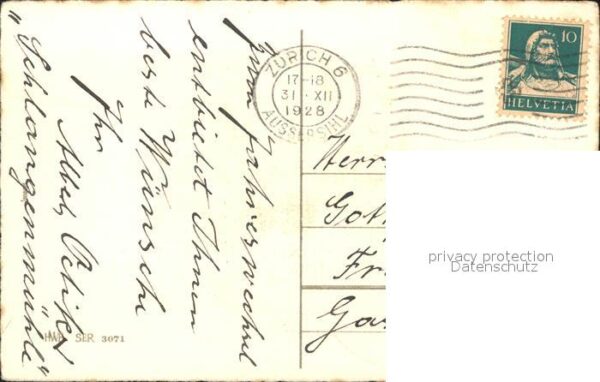 Zum Jahreswechsel
entbietet Ihnen
beste Wünsche
Ihr
Albert Oetiker
„Schlangenmühle"
ZÜRICH 6
17-18
31·XII
1928
AUSSERSIHL
10
HELVETIA
Herrn
Got
Fr
Gas
HWB SER 3071
privacy protection
Datenschutz